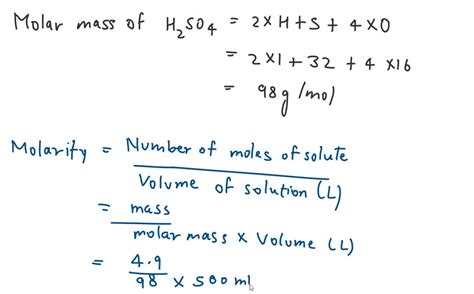 Molar mass of H₂SO₄ = 2×H+S+4×O
= 2×1+32+4×16
= 98g/mol
Molarity = Number of moles of solute
Volume of solution (L)
= mass
molar mass × Volume (L)
= 4.9
98 × 500 ml